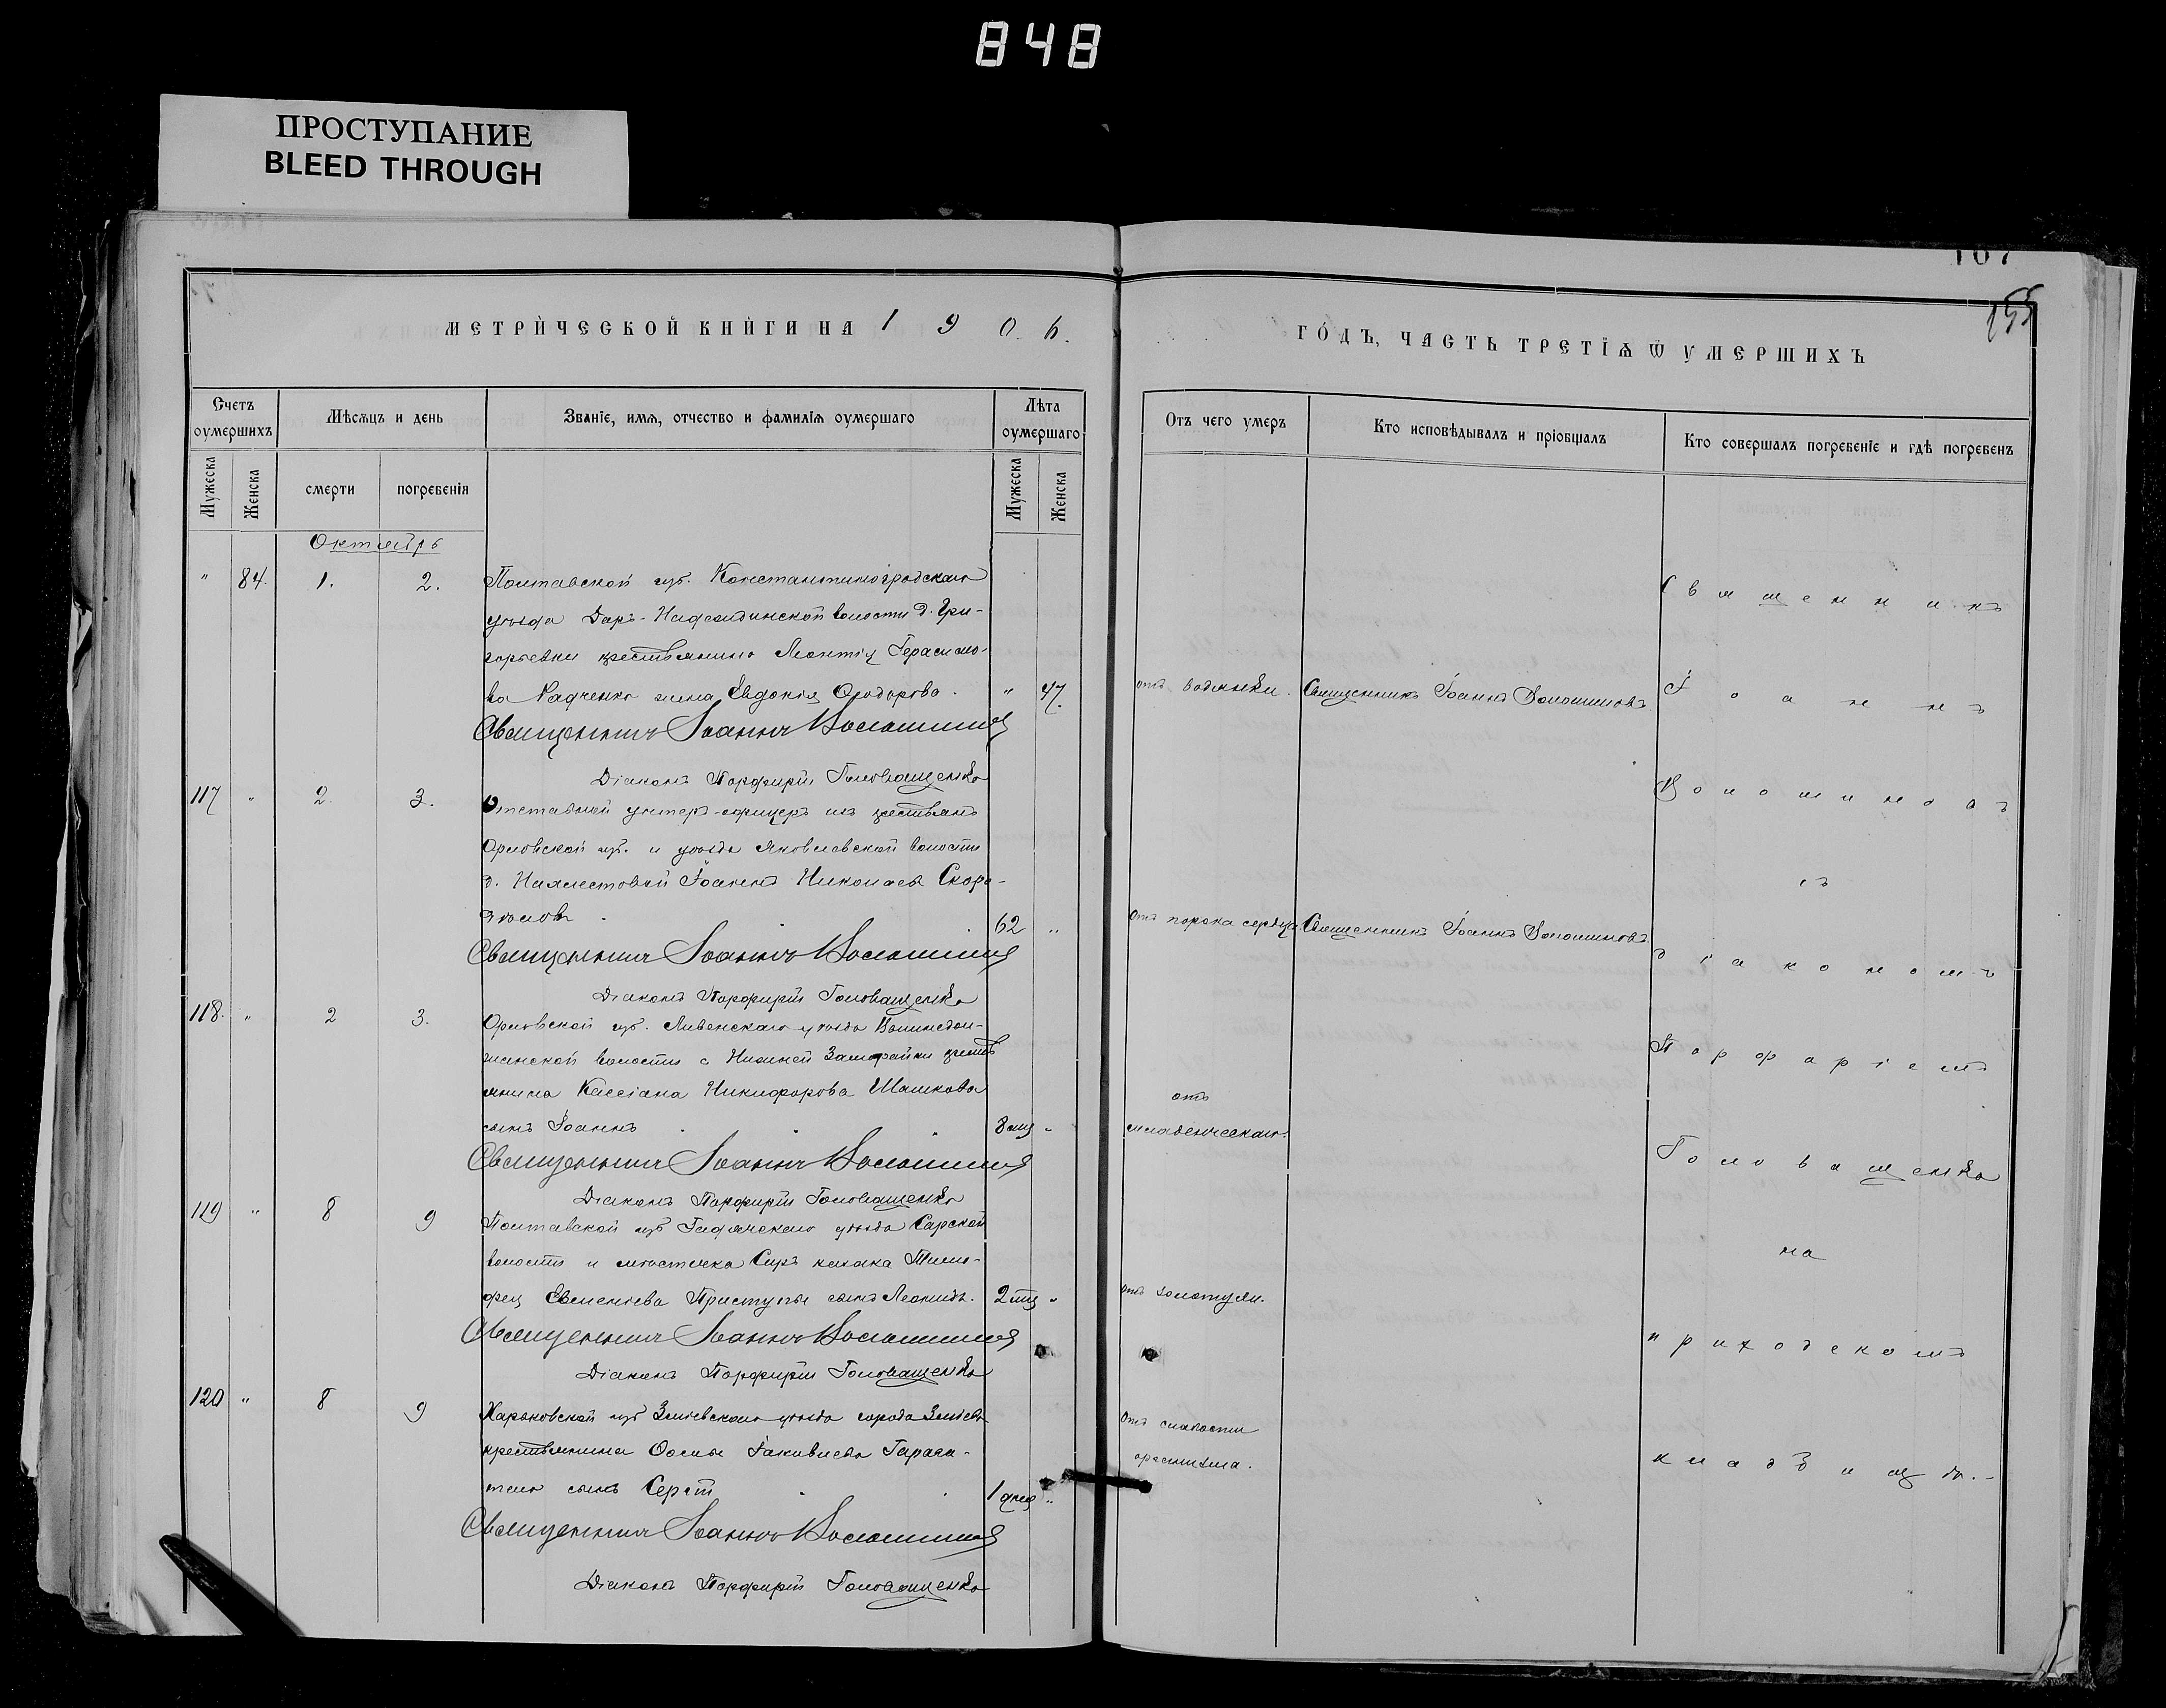 848
ПРОСТУПАНИЕ
BLEED THROUGH
167
155
МЕТРИЧЕСКОЙ КНИГИ НА 1906.
ГОДЪ, ЧАСТЬ ТРЕТІЯ Ѿ УМЕРШИХЪ
Счетъ оумершихъ
Мѣсяцъ и день
Званіе, имя, отчество и фамилія оумершаго
Лѣта оумершаго
Отъ чего умеръ
Кто исповѣдывалъ и пріобщалъ
Кто совершалъ погребеніе и гдѣ погребенъ
Мужеска
Женска
смерти
погребенія
Мужеска
Женска
Октябрь
" 84. 1. 2. Полтавской губ. Константиноградскаго
уѣзда Даръ-Надеждинской волости д. Гри-
горьевки крестьянина Леонтія Герасимо-
ва Радченко жена Евдокія Ѳеодорова. " 47. отъ водянки. Священникъ Іоаннъ Волошиновъ
Священникъ Іоаннъ Волошинов
Діаконъ Порфирій Головащенко
117 " 2. 3. Отставной унтеръ-офицеръ изъ крестьянъ
Орловской губ. и уѣзда Яковлевской волости
д. Іоаннъ Николаевъ Скоро-
62 " отъ порока сердца Священникъ Іоаннъ Волошиновъ
Священникъ Іоаннъ Волошинов
Діаконъ Порфирій Головащенко
118. " 2 3. Орловской губ. Ливенскаго уѣзда
волости с. Нижней кресть
янина Кассіана Никифорова Шашкова
сынъ Іоаннъ 8 мц " отъ младенческаго.
Священникъ Іоаннъ Волошинов
Діаконъ Порфирій Головащенко
119 " 8 9 Полтавской губ Гадячскаго уѣзда Сарской
волости и мѣстечка Саръ казака Тимо-
фея Приступы сынъ Леонидъ. 2 мц " отъ золотухи.
Священникъ Іоаннъ Волошинов
Діаконъ Порфирій Головащенко
120 " 8 9 Харьковской губ Зміевскаго уѣзда города Зміева
крестьянина Іаковлева
сынъ Сергій 1 дня " Отъ слабости
организма.
Священникъ Іоаннъ Волошинов
Діаконъ Порфирій Головащенко
Священникъ
Іоаннъ
Волошиновъ
съ
діакономъ
Порфиріемъ
Головащенко
на
приходскомъ
кладбищѣ.-